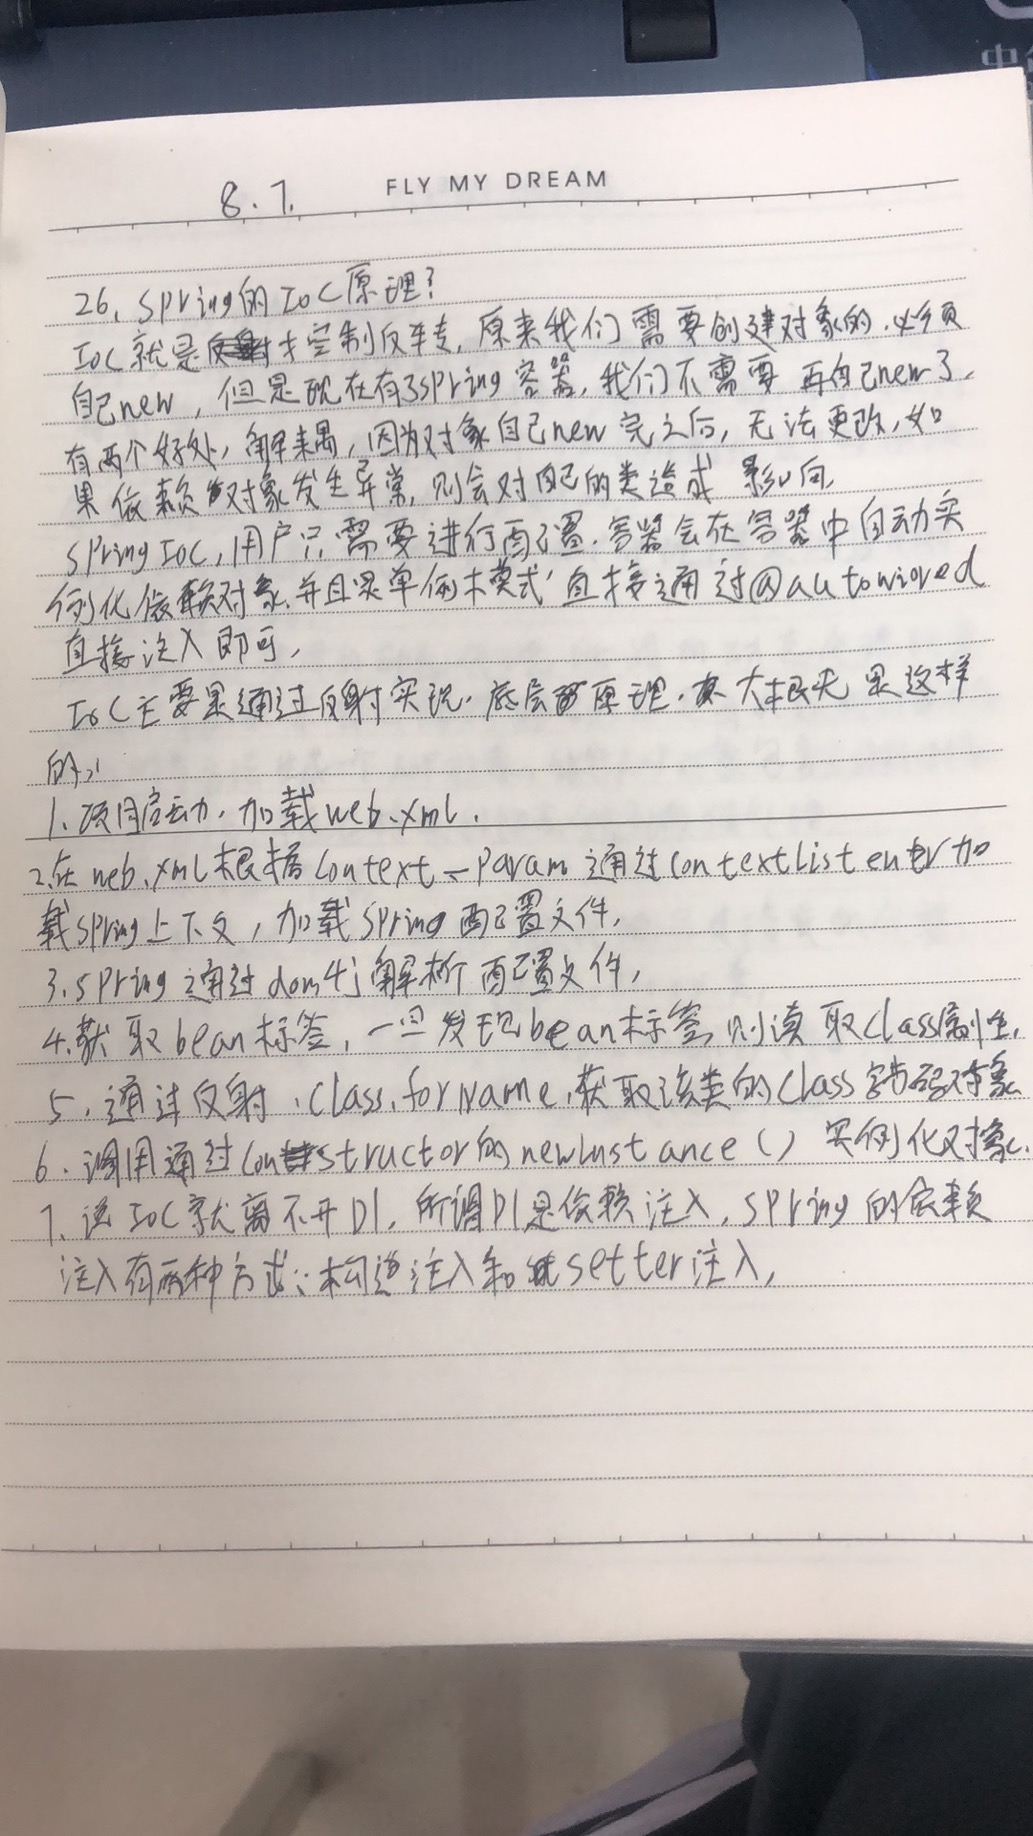 中
8.7.
FLY MY DREAM
26、Spring的IoC原理?
IoC就是控制反转,原来我们需要创建对象的,必须
自己new,但是现在有了Spring容器,我们不需要再自己new了,
有两个好处,解耦,因为对象自己new完之后,无法更改,如
果依赖对象发生异常,则会对自己的类造成影响,
Spring IoC,用户只需要进行配置,容器会在容器中自动实
例化依赖对象,并且是单例模式,直接通过@autowired
直接注入即可,
IoC主要是通过反射实现,底层原理,大概是这样
的:
1、项目启动,加载web.xml.
2、在web.xml根据Context-Param通过ContextListener加
载Spring上下文,加载Spring配置文件,
3、Spring通过dom4j解析配置文件,
4、获取bean标签,一旦发现bean标签,则读取Class属性,
5、通过反射,Class.forName,获取该类的Class字节码对象
6、调用通过Constructor的newInstance()实例化对象.
7、说IoC就离不开DI,所谓DI是依赖注入,Spring的依赖
注入有两种方式:构造注入和setter注入,